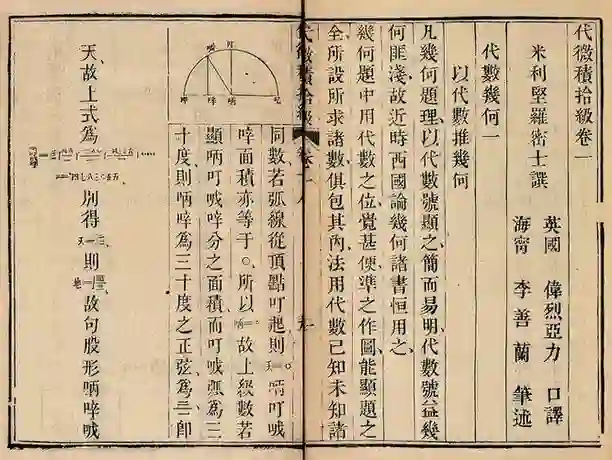 代微積拾級卷一
米利堅羅密士譔
英國 偉烈亞力 口譯
海甯 李善蘭 筆述
代數幾何一
以代數推幾何
凡幾何題理以代數號顯之簡而易明代數號益幾
何匪淺故近時西國論幾何諸書恒用之
幾何題中用代數之位覺甚便準之作圖能顯題之
全所設所求諸數俱包其內法用代數已知未知諸
代微積拾級
同數若弧線從頂點叮起則 叮
面積亦等于〇所以 故上級數若
顯 叮 分之面積而叮 弧為三
十度則 為三十度之正弦為 即
天故上式為 別得 則 故句股形